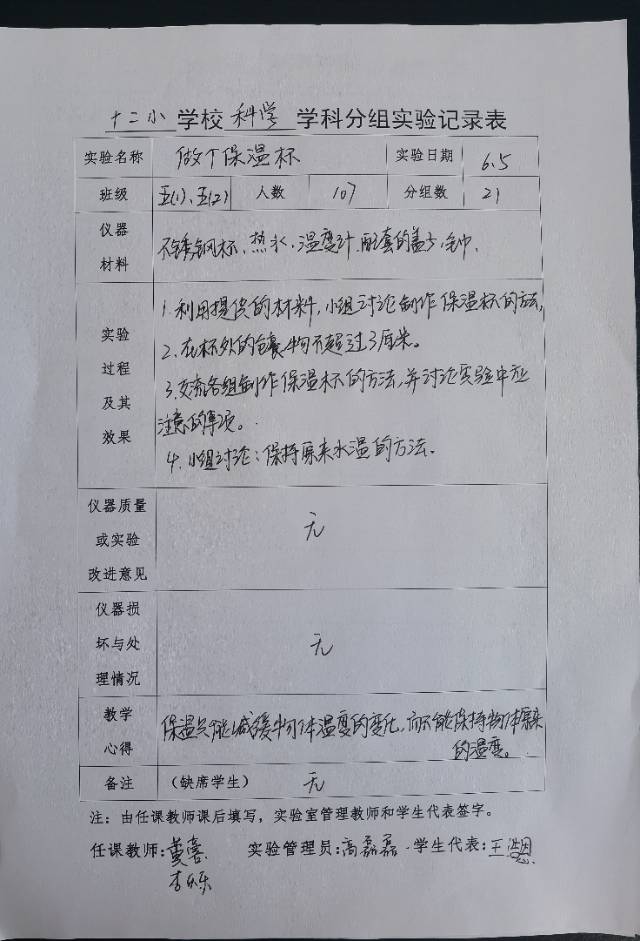 十二小 学校 科学 学科分组实验记录表
实验名称 做个保温杯 实验日期 6.5
班级 五(1)、五(2) 人数 107 分组数 21
仪器
材料
不锈钢杯、热水、温度计、配套的盖子、钟、
实验
过程
及其
效果
1.利用提供的材料,小组讨论制作保温杯的方法,
2.在杯外的包裹物不超过3厘米。
3.交流各组制作保温杯的方法,并讨论实验中应
注意的事项。
4.小组讨论:保持原来水温的方法.
仪器质量
或实验
改进意见
无
仪器损
坏与处
理情况
无
教学
心得
保温只能减缓物体温度的变化,而不能保持物体原来
的温度。
备注 (缺席学生) 无
注:由任课教师课后填写,实验室管理教师和学生代表签字。
任课教师: 实验管理员:高磊磊 学生代表:王
李乐